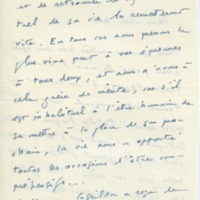 et de retrouver le
tuel de sa vie la remettront
vite. En tous cas nous prenons la
plus vive part à vos épreuves
à tous deux, et nous n'avons à
cela guère de mérite, car s'il
est inhabituel à l'être humain de
se mettre à la place de son pro-
chain, la vie nous a apporté
toutes les occasions d'être com-
préhensifs...
a reçu de